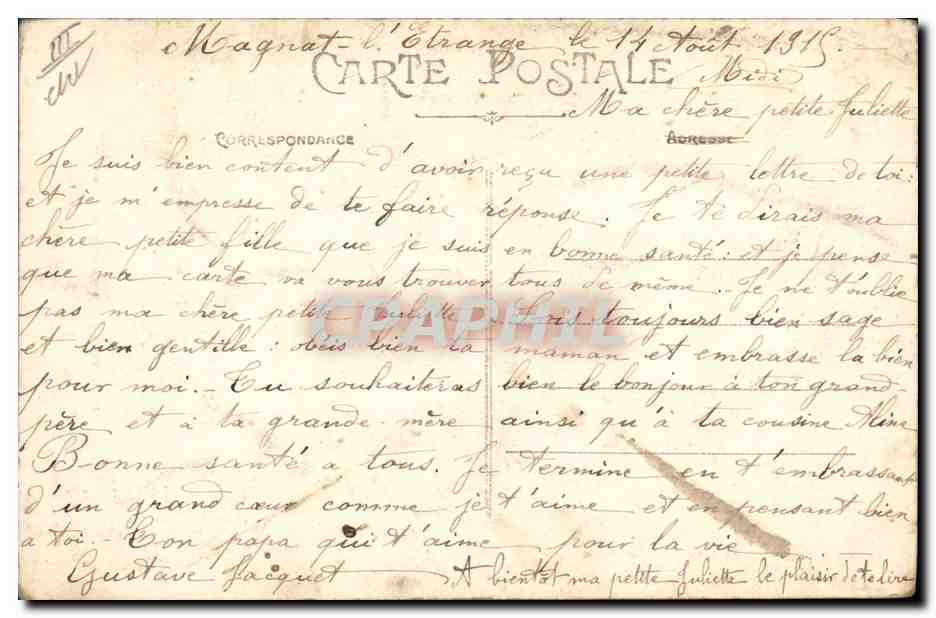 III
Magnat-l'Etrange le 14 Août 1915.-
CARTE POSTALE
Midi
Ma chère petite Juliette
CORRESPONDANCE
ADRESSE
Je suis bien content d'avoir reçu une petite lettre de toi :
et je m'empresse de te faire réponse. Je te dirais ma
chère petite fille que je suis en bonne santé : et je pense
que ma carte va vous trouver tous de même. Je ne t'oublie
pas ma chère petite Juliette. Sois toujours bien sage
et bien gentille : obéis bien ta maman et embrasse la bien
pour moi. - Tu souhaiteras bien le bonjour à ton grand-
père et à ta grande-mère ainsi qu'à ta cousine Aline
Bonne santé a tous. Je termine en t'embrassant
d'un grand cœur comme je t'aime et en pensant bien
a toi - Ton papa qui t'aime pour la vie
Gustave Jacquet A bientôt ma petite Juliette le plaisir de te lire
CPAPHIL